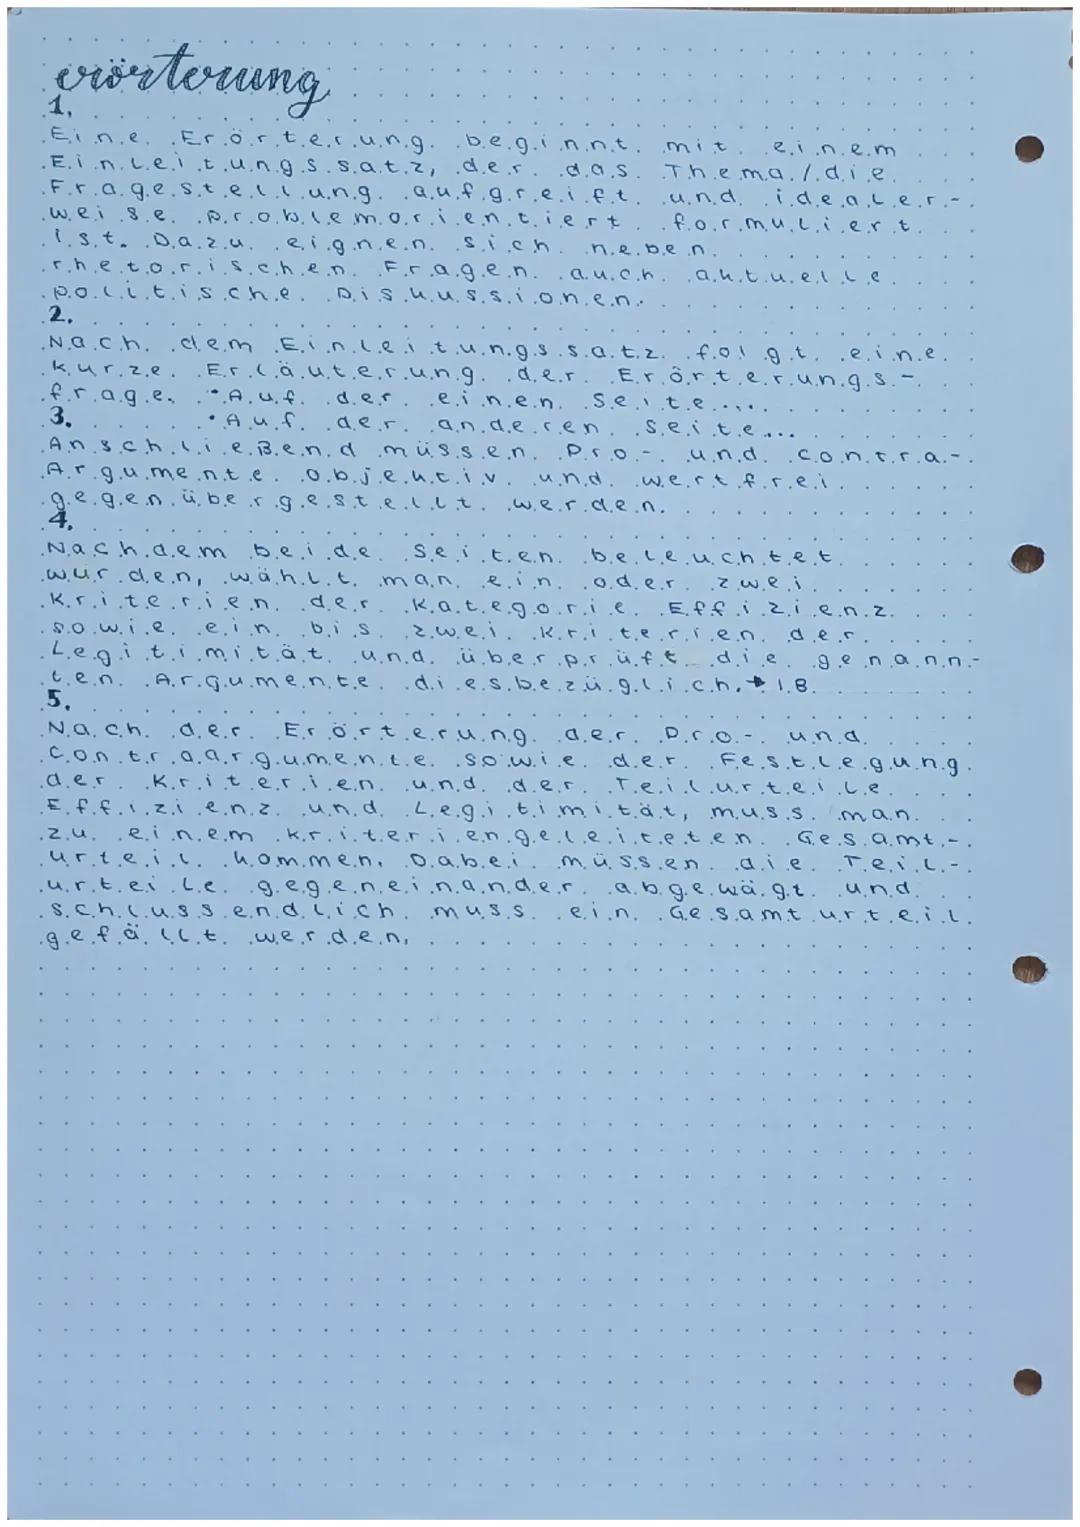 erörterung
1.
Eine Erörterung beginnt mit einem
Einleitungssatz, der das Thema/die
Fragestellung aufgreift und idealer-
weise problemorientiert formuliert
ist. Dazu eignen sich neben
rhetorischen Fragen auch aktuelle
politische Diskussionen.
2.
Nach dem Einleitungssatz folgt eine
kurze Erläuterung der Erörterungs-
frage. • Auf der einen Seite...
3. • Auf der anderen Seite...
Anschließend müssen Pro- und contra-
Argumente objektiv und wertfrei
gegenübergestellt werden.
4.
Nachdem beide Seiten beleuchtet
wurden, wählt man ein oder zwei
Kriterien der Kategorie Effizienz
sowie ein bis zwei Kriterien der
Legitimität und überprüft die genann-
ten Argumente diesbezüglich. → 1.8.
5.
Nach der Erörterung der Pro- und
Contraargumente sowie der Festlegung
der Kriterien und der Teilurteile
Effizienz und Legitimität, muss man
zu einem kriteriengeleiteten Gesamt-
urteil kommen. Dabei müssen die Teil-
urteile gegeneinander abgewägt und
schlussendlich muss ein Gesamturteil
gefällt werden.